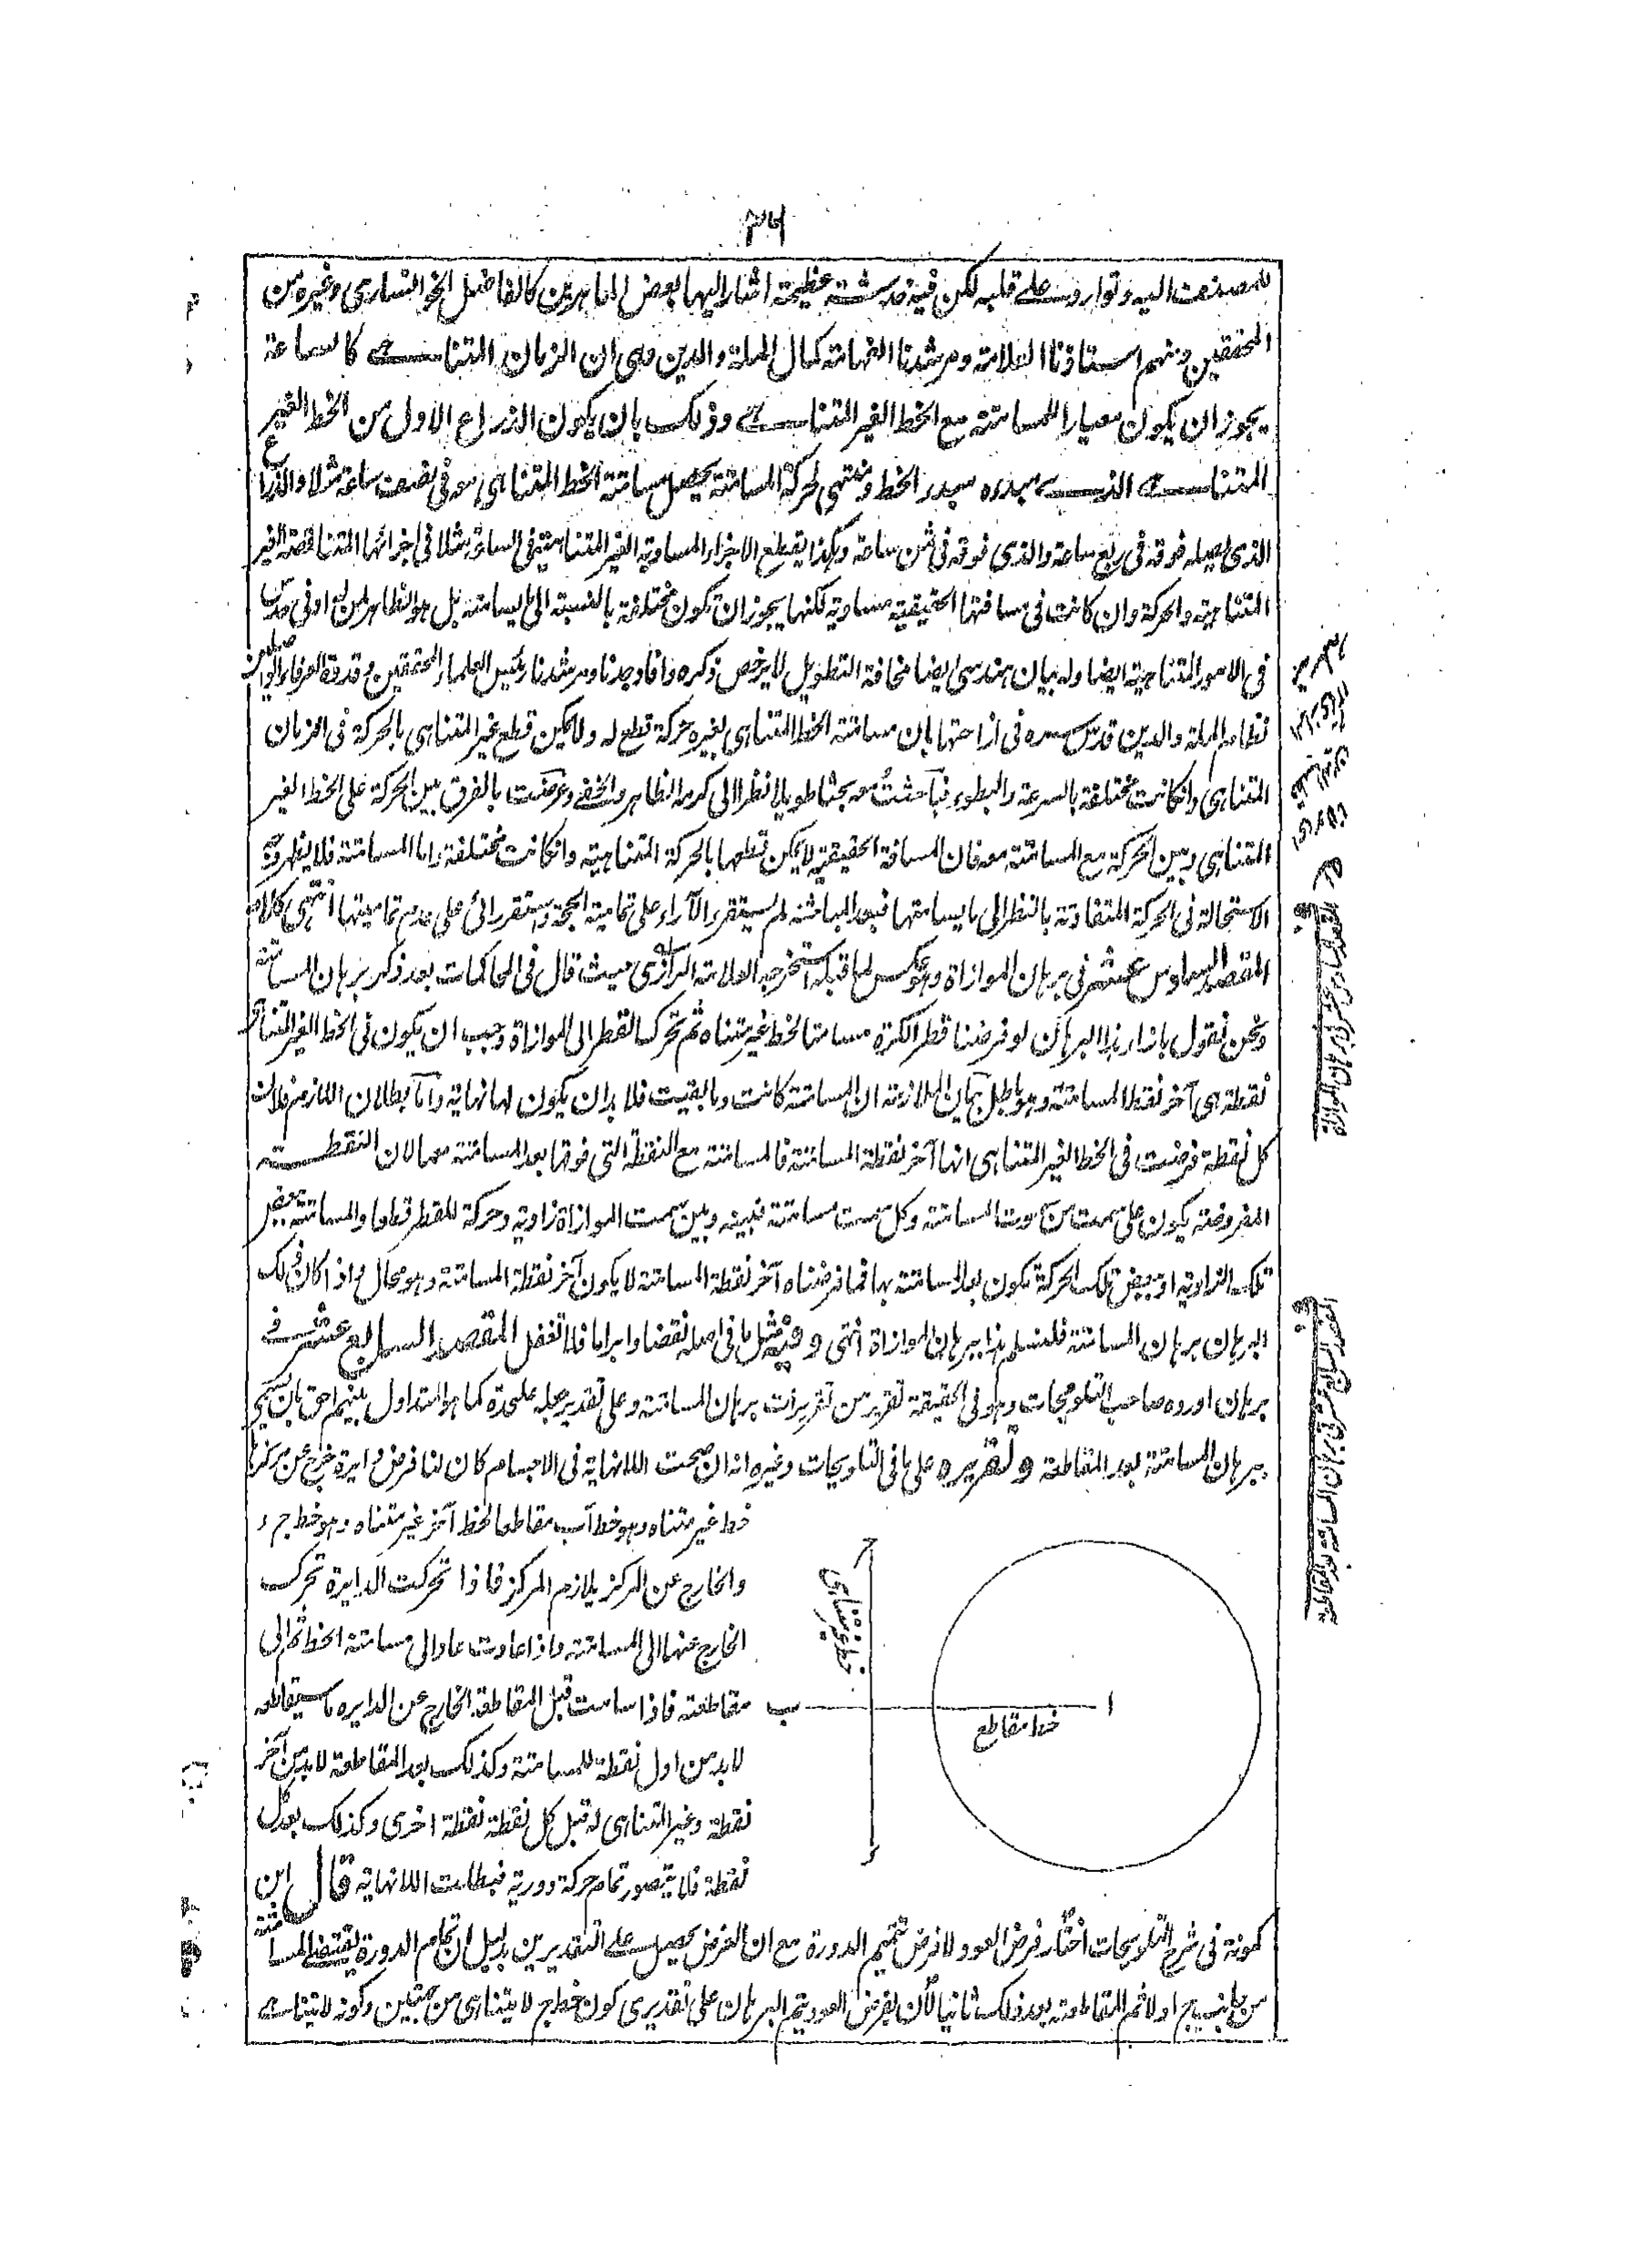 ٣٦
للمصنف اليه وتوارد على قلبه لكن فيه خدشة عظيمة اشار اليها بعض الماهرين كالفاضل الخوانساري وغيره من
المحققين ومنهم استاذنا العلامة ومرشدنا الفهامة كمال الملة والدين وهي ان الزمان المتناهي كالساعة
يجوز ان يكون معيارا للمسامتة مع الخط الغير المتناهي وذلك بان يكون الذراع الاول من الخط الغير
المتناهي الذي مبدءه مبدء الخط ومنتهى لحركة المسامتة يحصل مسامتة الخط المتناهي معه في نصف ساعة مثلا والذراع
الذي يصله فوقه في ربع ساعة والذي فوقه في ثمن ساعة وهكذا يقطع الاجزاء المساوية الغير المتناهية في الساعة مثلا في اجزائها المتناقصة الغير
المتناهية والحركة وان كانت في مسافتها الحقيقية مساوية لكنها يجوز ان تكون مختلفة بالنسبة الى ما يسامته بل هو الظاهر لمن له ادنى حدس
في الامور المتناهية ايضا وله بيان هندسي ايضا مخافة التطويل لا يرخص ذكره وافاد جدنا ومرشدنا رئيس العلماء المحققين وقدوة العرفاء الواصلين
نظام الملة والدين قدس سره في ازاحتها بان مسامتة الخط المتناهي لغيره حركة قطع له ولا يمكن قطع غير المتناهي بالحركة في الزمان
المتناهي وان كانت مختلفة بالسرعة والبطوء فباحثت معه بحثا طويلا نظرا الى كرمه الظاهر والخفي وعرضت بالفرق بين الحركة على الخط الغير
المتناهي وبين الحركة مع المسامتة معه فان المسافة الحقيقية لا يمكن قطعها بالحركة المتناهية وان كانت مختلفة واما المسامتة فلا يظهر وجه
الاستحالة في الحركة المتفاوتة بالنظر الى ما يسامتها فبعد المباحثة لم يستقر الآراء على تمامية الحجة واستقر رائي على عدم تماميتها انتهى كلامه
المقصد السادس عشر في برهان الموازاة وهو عكس لما قبله استخرجه العلامة الرازي حيث قال في المحاكمات بعد ذكر برهان المسامتة
ونحن نقول بازاء هذا البرهان لو فرضنا قطر الكرة مسامتا لخط غير متناه ثم تحرك القطر الى الموازاة وجب ان يكون في الخط الغير المتناهي
نقطة هي آخر نقط المسامتة وهو باطل بيان الملازمة ان المسامتة كانت وما بقيت فلا بد ان يكون لها نهاية واما بطلان اللازم فلان
كل نقطة فرضت في الخط الغير المتناهي انها آخر نقطة المسامتة فالمسامتة مع النقطة التي فوقها بعد المسامتة معها لان النقطة
المفروضة يكون على سمت من سموت المسامتة وكل سمت مسامتة فبينه وبين سمت الموازاة زاوية وحركة للقطر قطعا والمسامتة ببعض
تلك الزاوية او ببعض تلك الحركة تكون بعد المسامتة بها فما فرضناه آخر نقطة المسامتة لا يكون آخر نقطة المسامتة وهو محال واذا كان ذلك
البرهان برهان المسامتة فلنسلم هذا ببرهان الموازاة انتهى وفيه مثل ما في اصله نقضا وابراما فلا تغفل المقصد السابع عشر في
برهان اورده صاحب التلويحات وهو في الحقيقة تقرير من تقريرات برهان المسامتة وعلى تقدير جعله علىحدة كما هو المتداول بينهم احق بان يسمى
ببرهان المسامتة بعد المقاطعة وتقريره على ما في التلويحات وغيره انه ان صحت اللانهاية في الاجسام كان لنا فرض دايرة خرج عن مركزها
خط غير متناه وهو خط آب مقاطعا لخط آخر غير متناه وهو خط ج ء
والخارج عن المركز يلازم المركز فاذا تحركت الدايرة تحرك
الخارج عنها الى المسامتة واذا عادت عاد الى مسامتة الخط ثم الى
مقاطعته فاذا سامت قبل المقاطعة الخارج عن الدايرة ما سيقاطعه
لا بد من اول نقطة للمسامتة وكذلك بعد المقاطعة لا بد من آخر
نقطة وغير المتناهي له قبل كل نقطة نقطة اخرى وكذلك بعد كل
نقطة فلا يتصور تمام حركة دورية فبطلت اللانهاية قال ابن
ج
خط غير متناهي
ب
ا
خط مقاطع
ء
كمونة في شرح التلويحات اختار فرض العود ولا فرض تتميم الدورة مع ان الغرض يحصل على التقديرين بدليل ان تمام الدورة يقتضي المسامتة
من جانب ج اولا ثم المقاطعة بعد ذلك ثانيا لان بفرض العود يتم البرهان على تقديري كون خط ج لا يتناهى من جهتين وكونه لا يتناهى